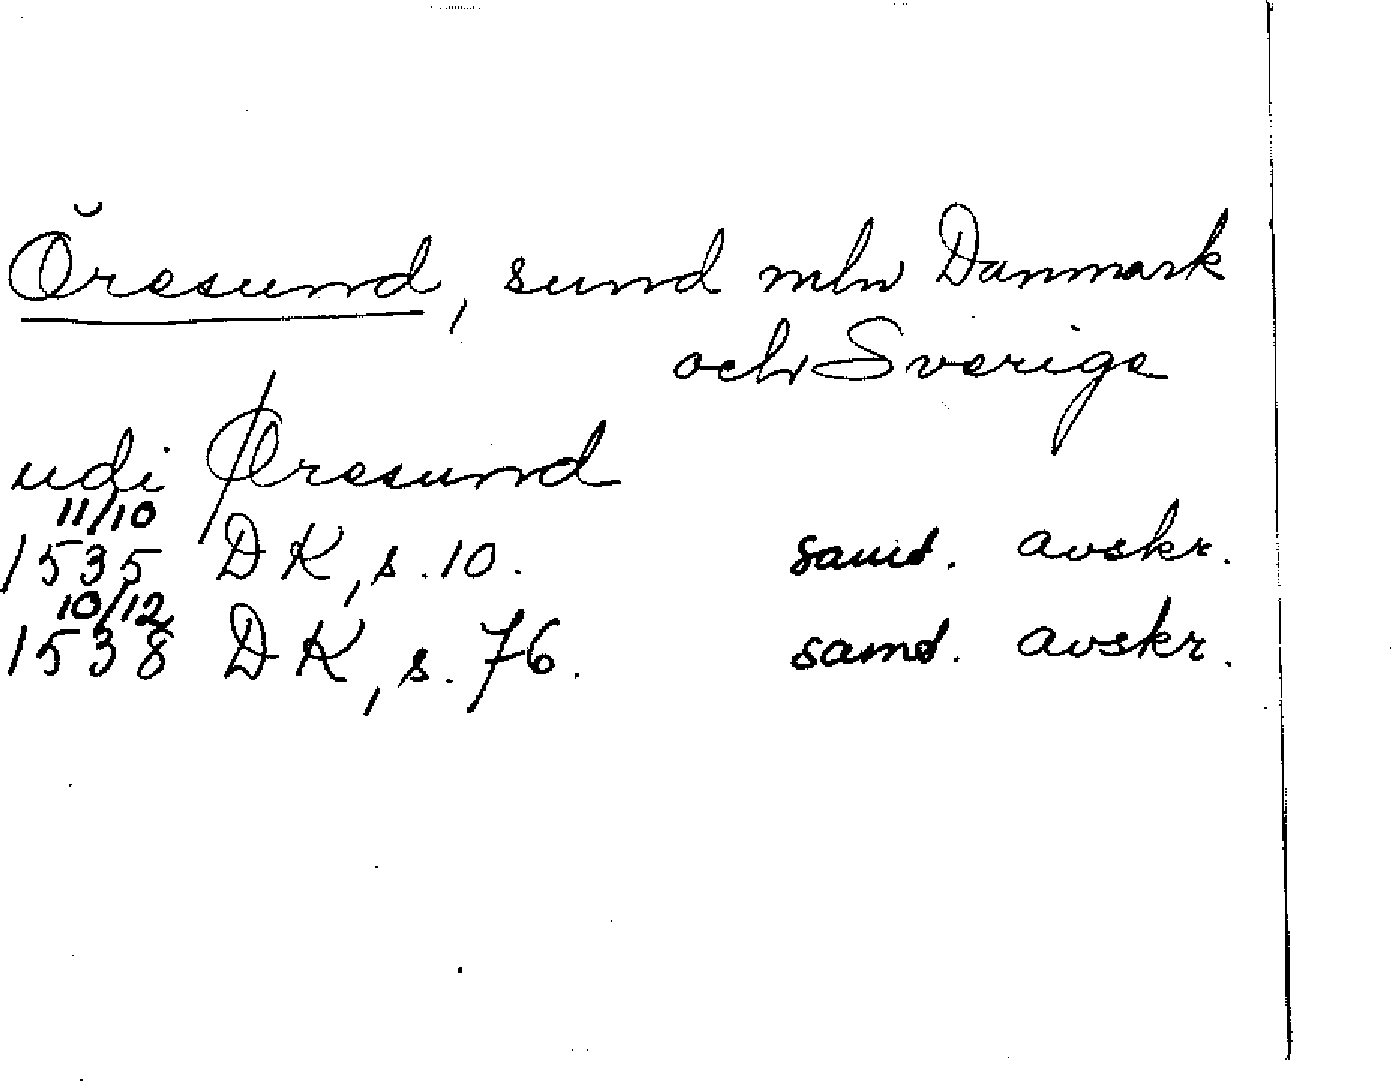 Öresund, sund mln Danmark
och Sverige
udi Øresund
11/10
1535 DK, s. 10. samt. avskr.
10/12
1538 DK, s. 76. samt. avskr.